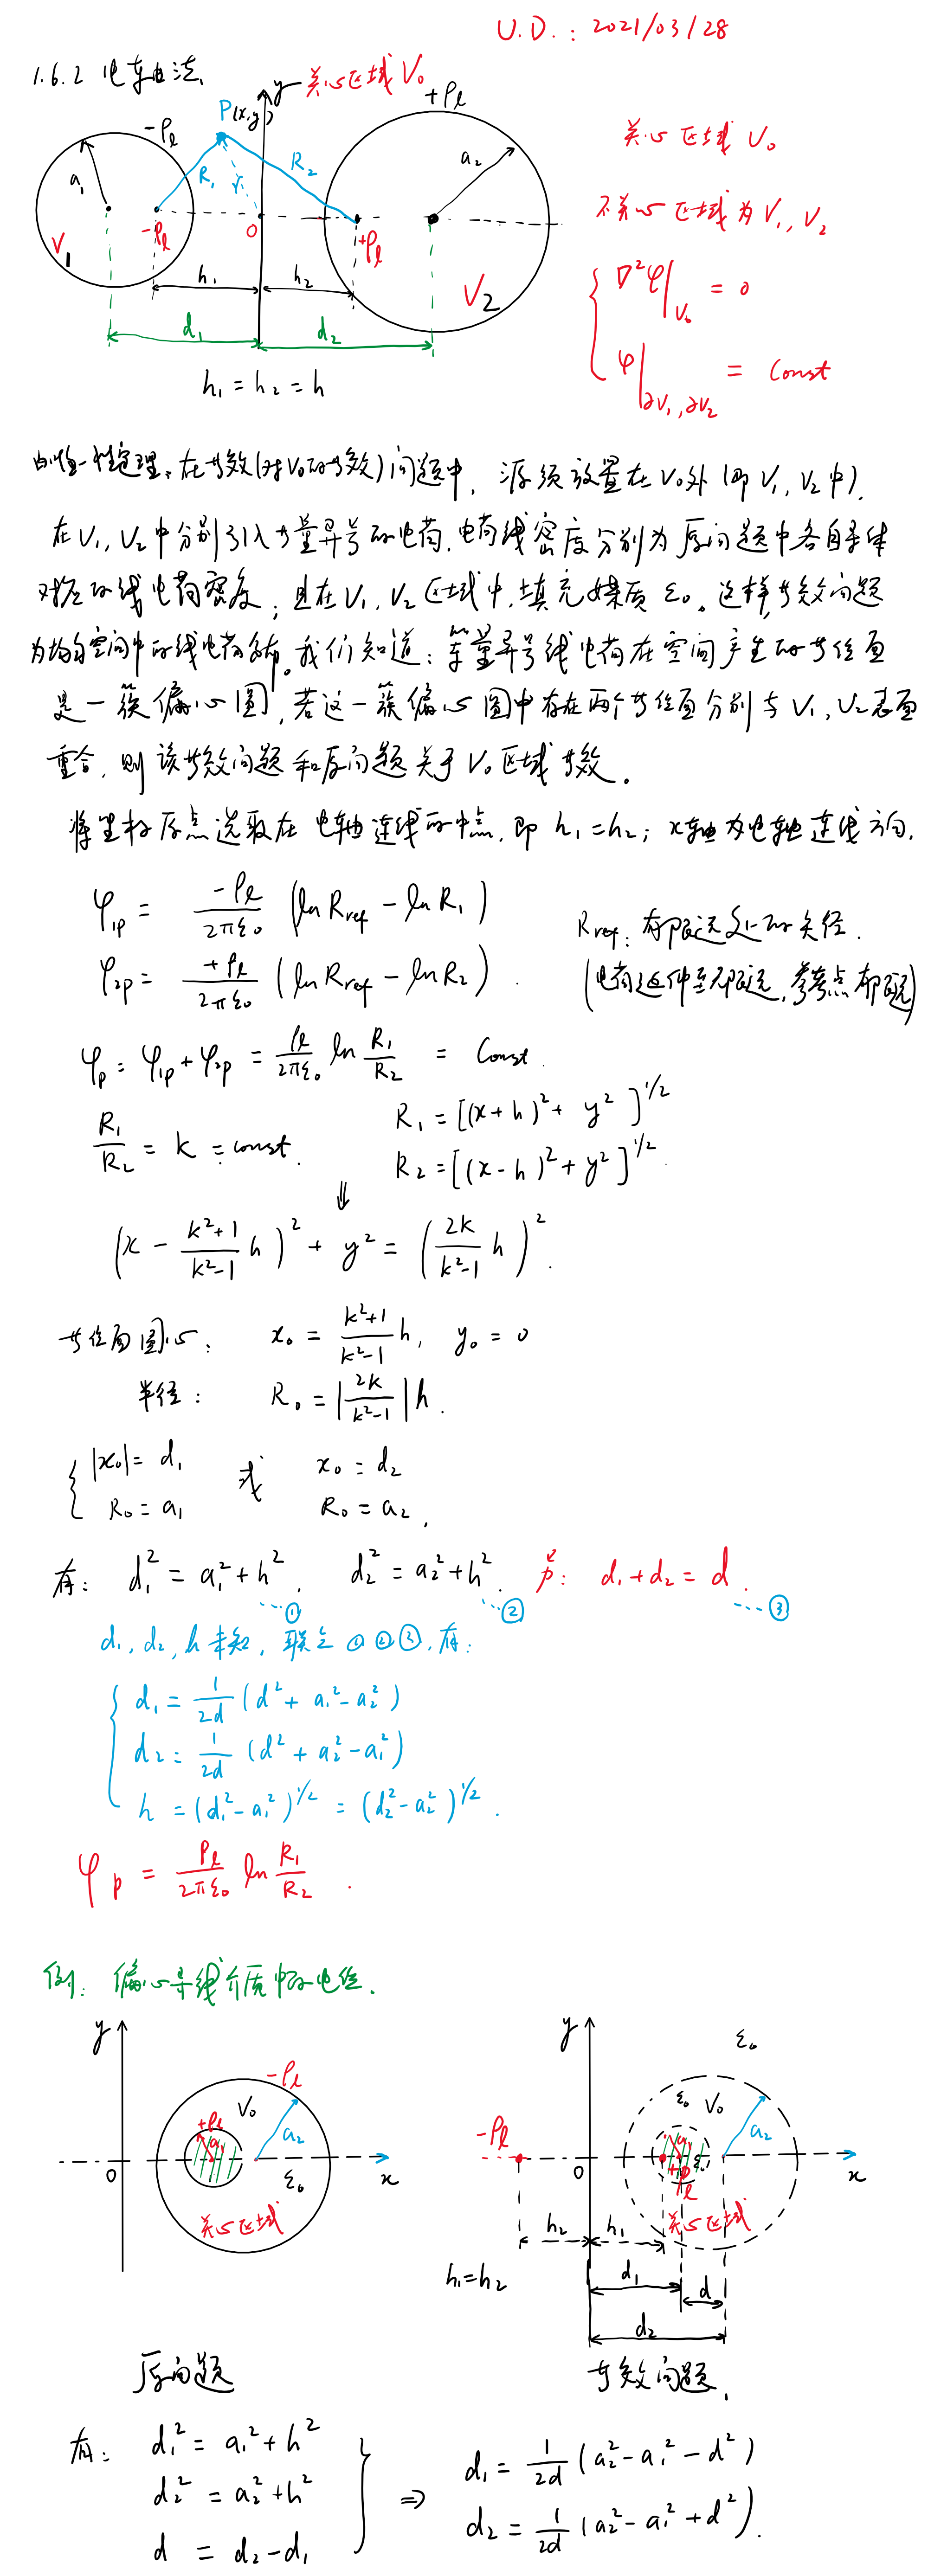 U.D.: 2021/03/28
1.6.2 电轴法
关心区域 V₀
y
+ρₗ
-ρₗ
P(x,y)
a₁
R₁
r
R₂
a₂
V₁
-ρₗ
0
+ρₗ
V₂
h₁
h₂
d₁
d₂
h₁ = h₂ = h
关心区域 V₀
不关心区域为 V₁, V₂
∇²φ|V₀ = 0
φ|∂V₁,∂V₂ = Const
由唯一性定理,在等效(对V₀的等效)问题中,源须放置在V₀外(即V₁,V₂中).
在V₁,V₂中分别引入等量异号的电荷,电荷线密度分别为原问题中各自导体
对应的线电荷密度;且在V₁,V₂区域中,填充媒质 ε₀。这样,等效问题
为均匀空间中的线电荷。我们知道:等量异号线电荷在空间产生的等位面
是一簇偏心圆,若这一簇偏心圆中存在两个等位面分别与V₁,V₂表面
重合,则该等效问题和原问题关于V₀区域等效。
将坐标原点选取在电轴连线的中点,即 h₁=h₂; x轴为电轴连线方向.
φ₁p = -ρₗ/2πε₀ (ln Rref - ln R₁)
φ₂p = +ρₗ/2πε₀ (ln Rref - ln R₂).
Rref: 有限远处的矢径.
(电荷延伸至无限远,参考点有限远)
φp = φ₁p + φ₂p = ρₗ/2πε₀ ln R₁/R₂ = Const.
R₁/R₂ = k = const.
R₁ = [(x+h)² + y²]^1/2
R₂ = [(x-h)² + y²]^1/2.
⇓
(x - (k²+1)/(k²-1) h)² + y² = (2k/(k²-1) h)².
等位面圆心: x₀ = (k²+1)/(k²-1) h, y₀ = 0
半径: R₀ = |2k/(k²-1)| h.
{ |x₀| = d₁ 或 x₀ = d₂
R₀ = a₁ R₀ = a₂,
有: d₁² = a₁² + h². …① d₂² = a₂² + h². …② 又: d₁ + d₂ = d. …③
d₁, d₂, h 未知, 联立①②③,有:
d₁ = 1/2d (d² + a₁² - a₂²)
d₂ = 1/2d (d² + a₂² - a₁²)
h = (d₁² - a₁²)^1/2 = (d₂² - a₂²)^1/2.
φp = ρₗ/2πε₀ ln R₁/R₂.
例: 偏心导线介质中的电位.
y
-ρₗ
V₀
+ρₗ
a₁
a₂
0
ε₀
x
关心区域
原问题
y
ε₀
ε₀
V₀
a₂
-ρₗ
a₁
ε₀
+ρₗ
0
x
关心区域
h₂
h₁
h₁=h₂
d₁
d
d₂
等效问题.
有: d₁² = a₁² + h²
d₂² = a₂² + h²
d = d₂ - d₁
⇒ d₁ = 1/2d (a₂² - a₁² - d²)
d₂ = 1/2d (a₂² - a₁² + d²).